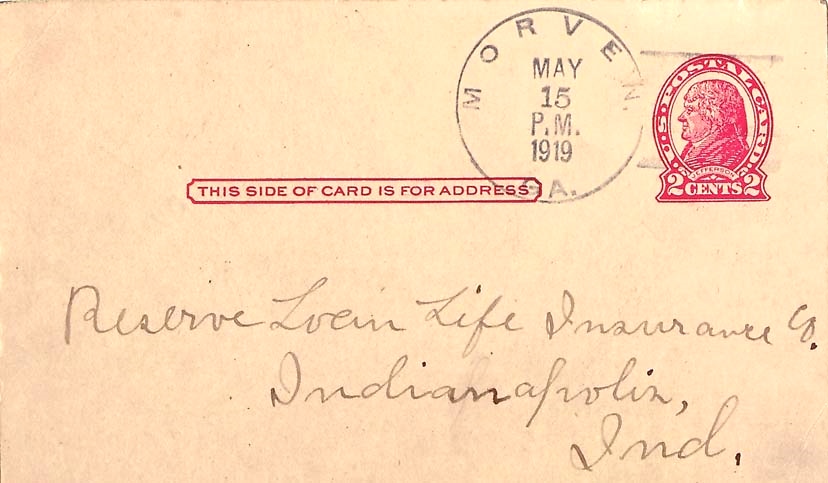 MORVEN
MAY
15
P.M.
1919
GA.
U.S. POSTAL CARD
JEFFERSON
2 CENTS 2
THIS SIDE OF CARD IS FOR ADDRESS
Reserve Loan Life Insurance Co.
Indianapolis,
Ind.